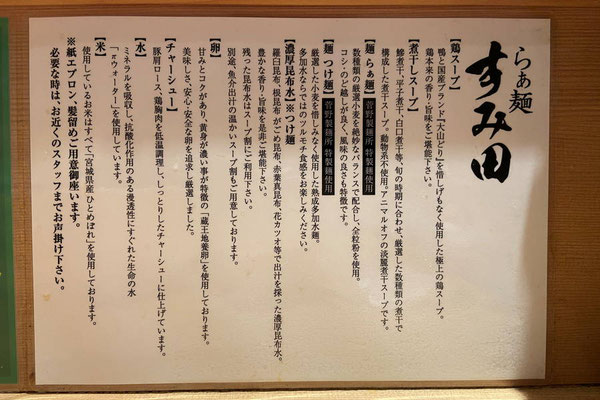 らぁ麺
すみ田
【鶏スープ】
鴨と国産ブランド『大山どり』を惜しげもなく使用した極上の鶏スープ。
鶏本来の香り・旨味をご堪能下さい。
【煮干しスープ】
鯵煮干、平子煮干、白口煮干等、旬の時期に合わせ、厳選した数種類の煮干で
構成した煮干スープ。動物系不使用。アニマルオフの淡麗煮干スープです。
【麺 らぁ麺】菅野製麺所 特製麺使用
数種類の厳選小麦を絶妙なバランスで配合し、全粒粉を使用。
コシ・のど越しが良く、風味の良さも特徴です。
【麺 つけ麺】菅野製麺所 特製麺使用
厳選した小麦を惜しみなく使用した熟成多加水麺。
多加水ならではのツルモチ食感をお楽しみください。
【濃厚昆布水】※つけ麺
羅臼昆布、根昆布、がごめ昆布、赤葉真昆布、花カツオ等で出汁を採った濃厚昆布水。
豊かな香り・旨味を是非ご堪能下さい。
残った昆布水はスープ割にご利用下さい。
別途、魚介出汁の温かいスープ割もご用意しております。
【卵】
甘みとコクがあり、黄身が濃い事が特徴の「蔵王地養卵」を使用しております。
美味しさ、安心・安全な卵を追求し厳選しました。
【チャーシュー】
豚肩ロース、鶏胸肉を低温調理し、しっとりしたチャーシューに仕上げています。
【水】
ミネラルを吸収し、抗酸化作用のある浸透性にすぐれた生命の水
「πウォーター」を使用しています。
【米】
使用しているお米はすべて「宮城県産 ひとめぼれ」を使用しております。
※紙エプロン 髪留めご用意御座います。
必要な時は、お近くのスタッフまでお声掛け下さい。